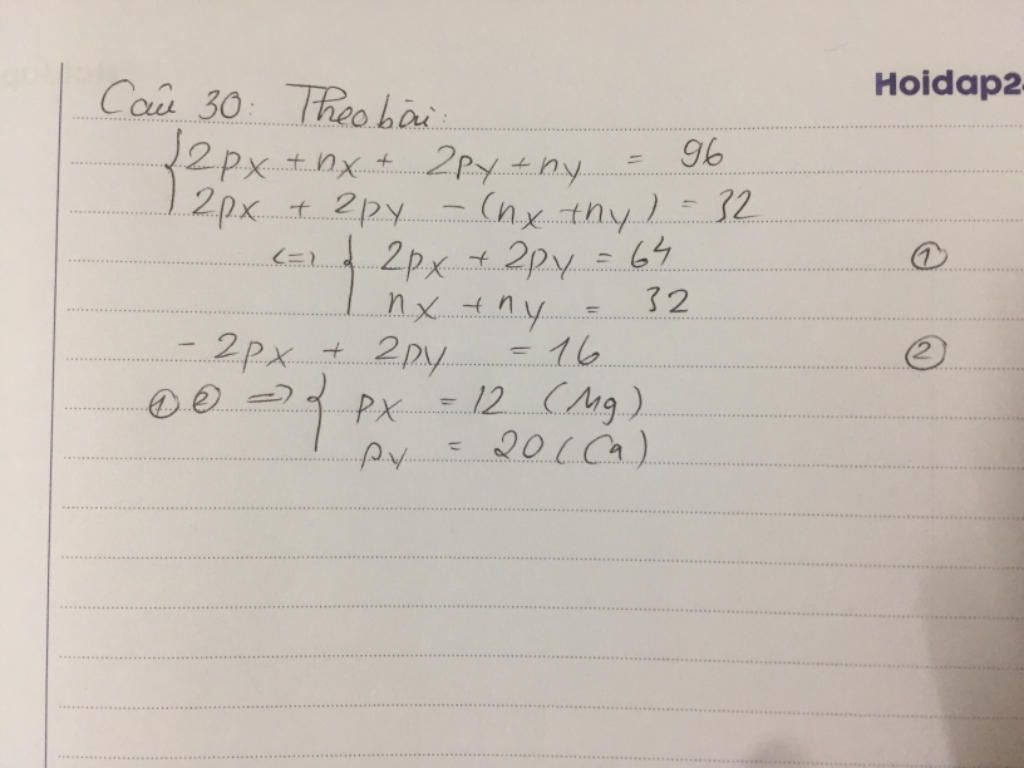 Hoidap2
Câu 30: Theo bài:
{ 2px + nx + 2py + ny = 96
2px + 2py - (nx + ny) = 32
<=> { 2px + 2py = 64 ①
nx + ny = 32
- 2px + 2py = 16 ②
① ② => { px = 12 (Mg)
py = 20 (Ca)